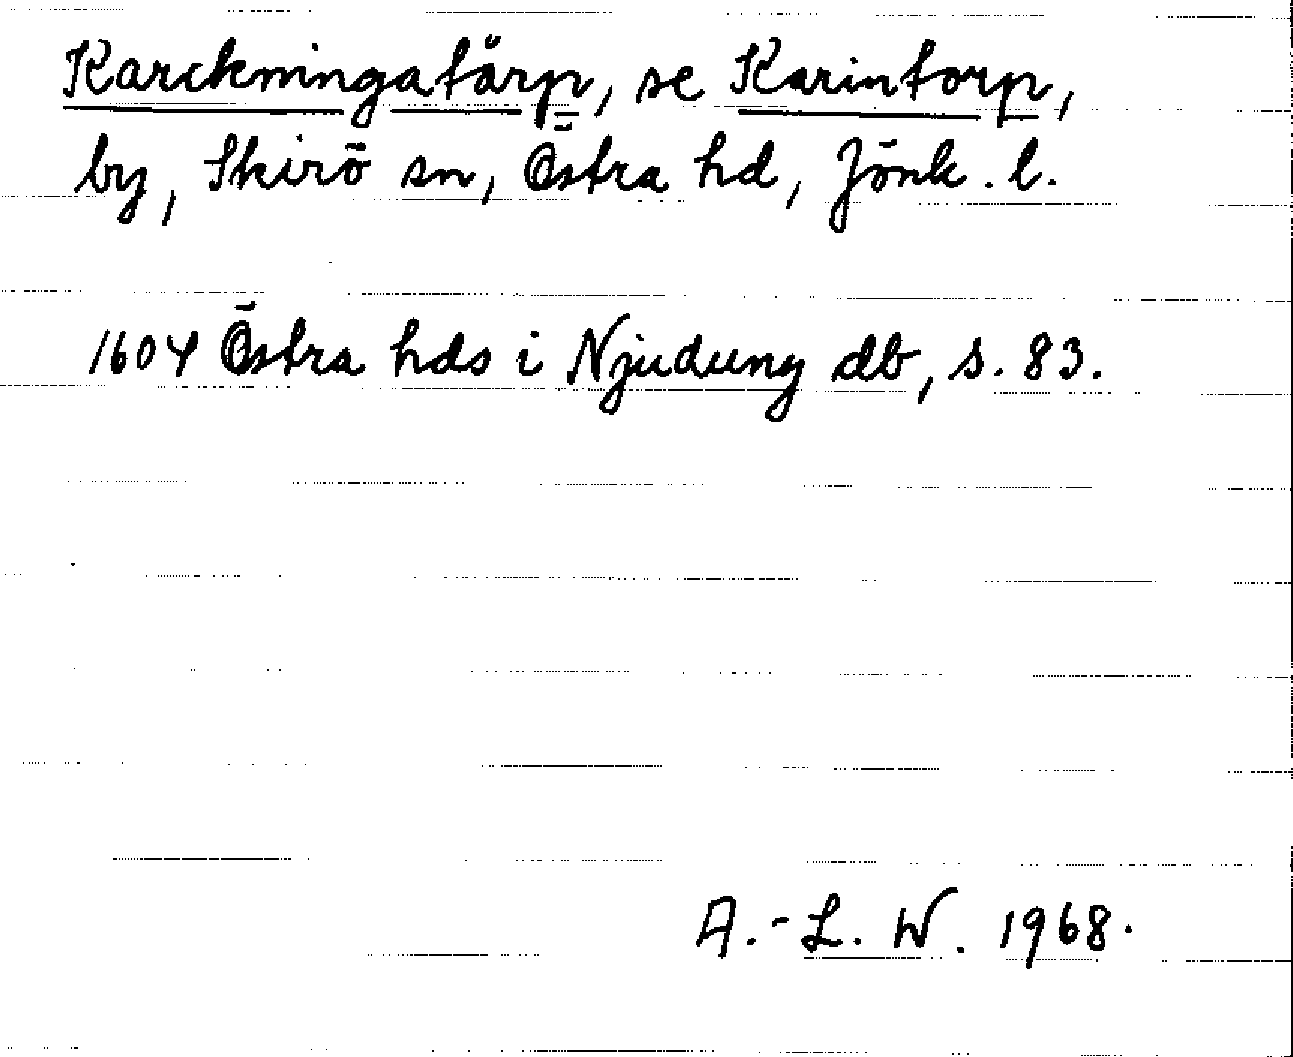 Karckningatårp, se Karintorp,
by, Skirö sn, Östra hd, Jönk. l.
1604 Östra hds i Njudung db, s. 83.
A.-L. W. 1968.